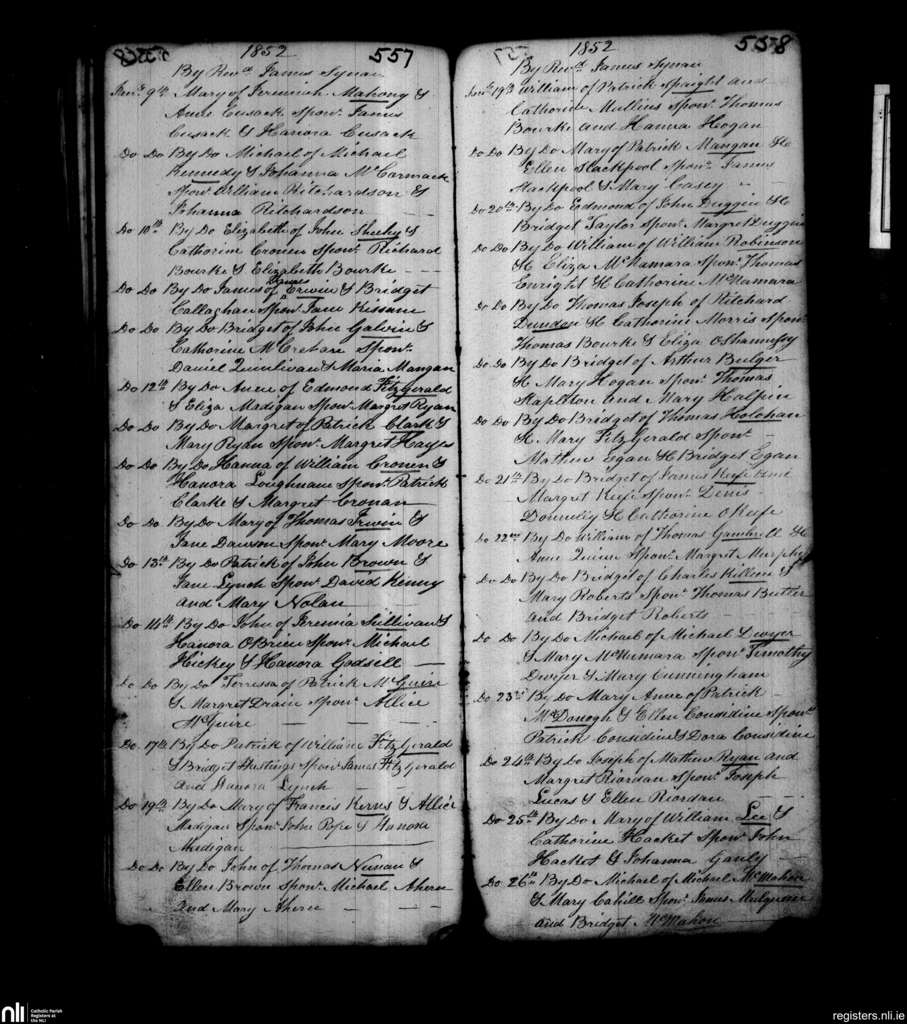 1852 557
By Revd. James Synan
Jany. 9th Mary of Jeremiah Mahony &
Anne Cusack Sponr. James
Cusack & Hanora Cusack
Do Do By Do Michael of Michael
Kennedy & Johanna McCormack
Sponr William Ritchardson &
Johanna Ritchardson
Do 10th By Do Elizabeth of John Sheehy &
Catherine Cronen Sponr. Richard
Bourke & Elizabeth Bourke
Do Do By Do James of James Erwin & Bridget
Callaghan Sponr. Jane Kissane
Do Do By Do Bridget of John Galvin &
Catherine Sponr.
Daniel Quinlivan & Maria Mangan
Do 12th By Do Anne of Edmond Fitzgerald
& Eliza Madigan Sponr. Margret Ryan
Do Do By Do Margret of Patrick Clark &
Mary Ryan Sponr. Margret Hayes
Do Do By Do Hanna of William Cronen &
Hanora Loughnane Sponr. Patrick
Clarke & Margret Cronan
Do Do By Do Mary of Thomas Irwin &
Jane Dawson Sponr. Mary Moore
Do 13th By Do Patrick of John Brown &
Jane Lynch Sponr David Kenny
and Mary Nolan
Do 14th By Do John of Jeremia Sullivan &
Hanora OBrien Sponr. Michael
Hickey & Hanora Godsell
Do Do By Do Terressa of Patrick McGuire
& Margret Drain Sponr. Allice
McGuire
Do 17th By Do Patrick of William FitzGerald
& Bridget Hastings Sponr James FitzGerald
and Hanora Lynch
Do 19th By Do Mary of Francis Kerns & Allice
Madigan Sponr. John Pope & Hanora
Madigan
Do Do By Do John of Thomas Nunan &
Ellen Brown Sponr. Michael Ahern
and Mary Ahern
1852 558
By Revd. James Synan
Jany. 19th William of Patrick Spright and
Catherine Mullins Sponr. Thomas
Bourke and Hanna Hogan
Do Do By Do Mary of Patrick Mangan &c
Ellen Stackpool Sponr. James
Stackpool & Mary Casey
Do 20th By Do Edmond of John Duggin &c
Bridget Taylor Sponr. Margret Duggin
Do Do By Do William of William Robinson
&c Eliza McNamara Sponr. Thomas
Enright &c Catherine McNamara
Do Do By Do Thomas Joseph of Ritchard
Dundon &c Catherine Morris Sponr.
Thomas Bourke & Eliza OShannesy
Do Do By Do Bridget of Arthur Bulger
&c Mary Hogan Sponr. Thomas
Stapleton and Mary Halpin
Do Do By Do Bridget of Thomas Holohan
&c Mary FitzGerald Sponr.
Mathew Egan &c Bridget Egan
Do 21st By Do Bridget of James Keefe and
Margret Keefe Sponr. Denis
Donnelly &c Catherine OKeefe
Do 22nd By Do William of Thomas Gambell &c
Anne Quinn Sponr. Margret Murphy
Do Do By Do Bridget of Charles Killeen &
Mary Roberts Sponr Thomas Butler
and Bridget Roberts
Do Do By Do Michael of Michael Dwyer
& Mary McNumara Sponr Timothy
Dwyer & Mary Cunningham
Do 23rd By Do Mary Anne of Patrick
McDonogh & Ellen Considine Sponr.
Patrick Considine & Dora Considine
Do 24th By Do Joseph of Mathew Ryan and
Margret Riordan Sponr. Joseph
Lucas & Ellen Riordan
Do 25th By Do Mary of William Lee &
Catherine Hacket Sponr. John
Hacket & Johanna Ganly
Do 26th By Do Michael of Michael McMahon
& Mary Cahill Sponr. James Mulqueen
and Bridget McMahon
nli Catholic Parish
Registers at
the NLI
registers.nli.ie